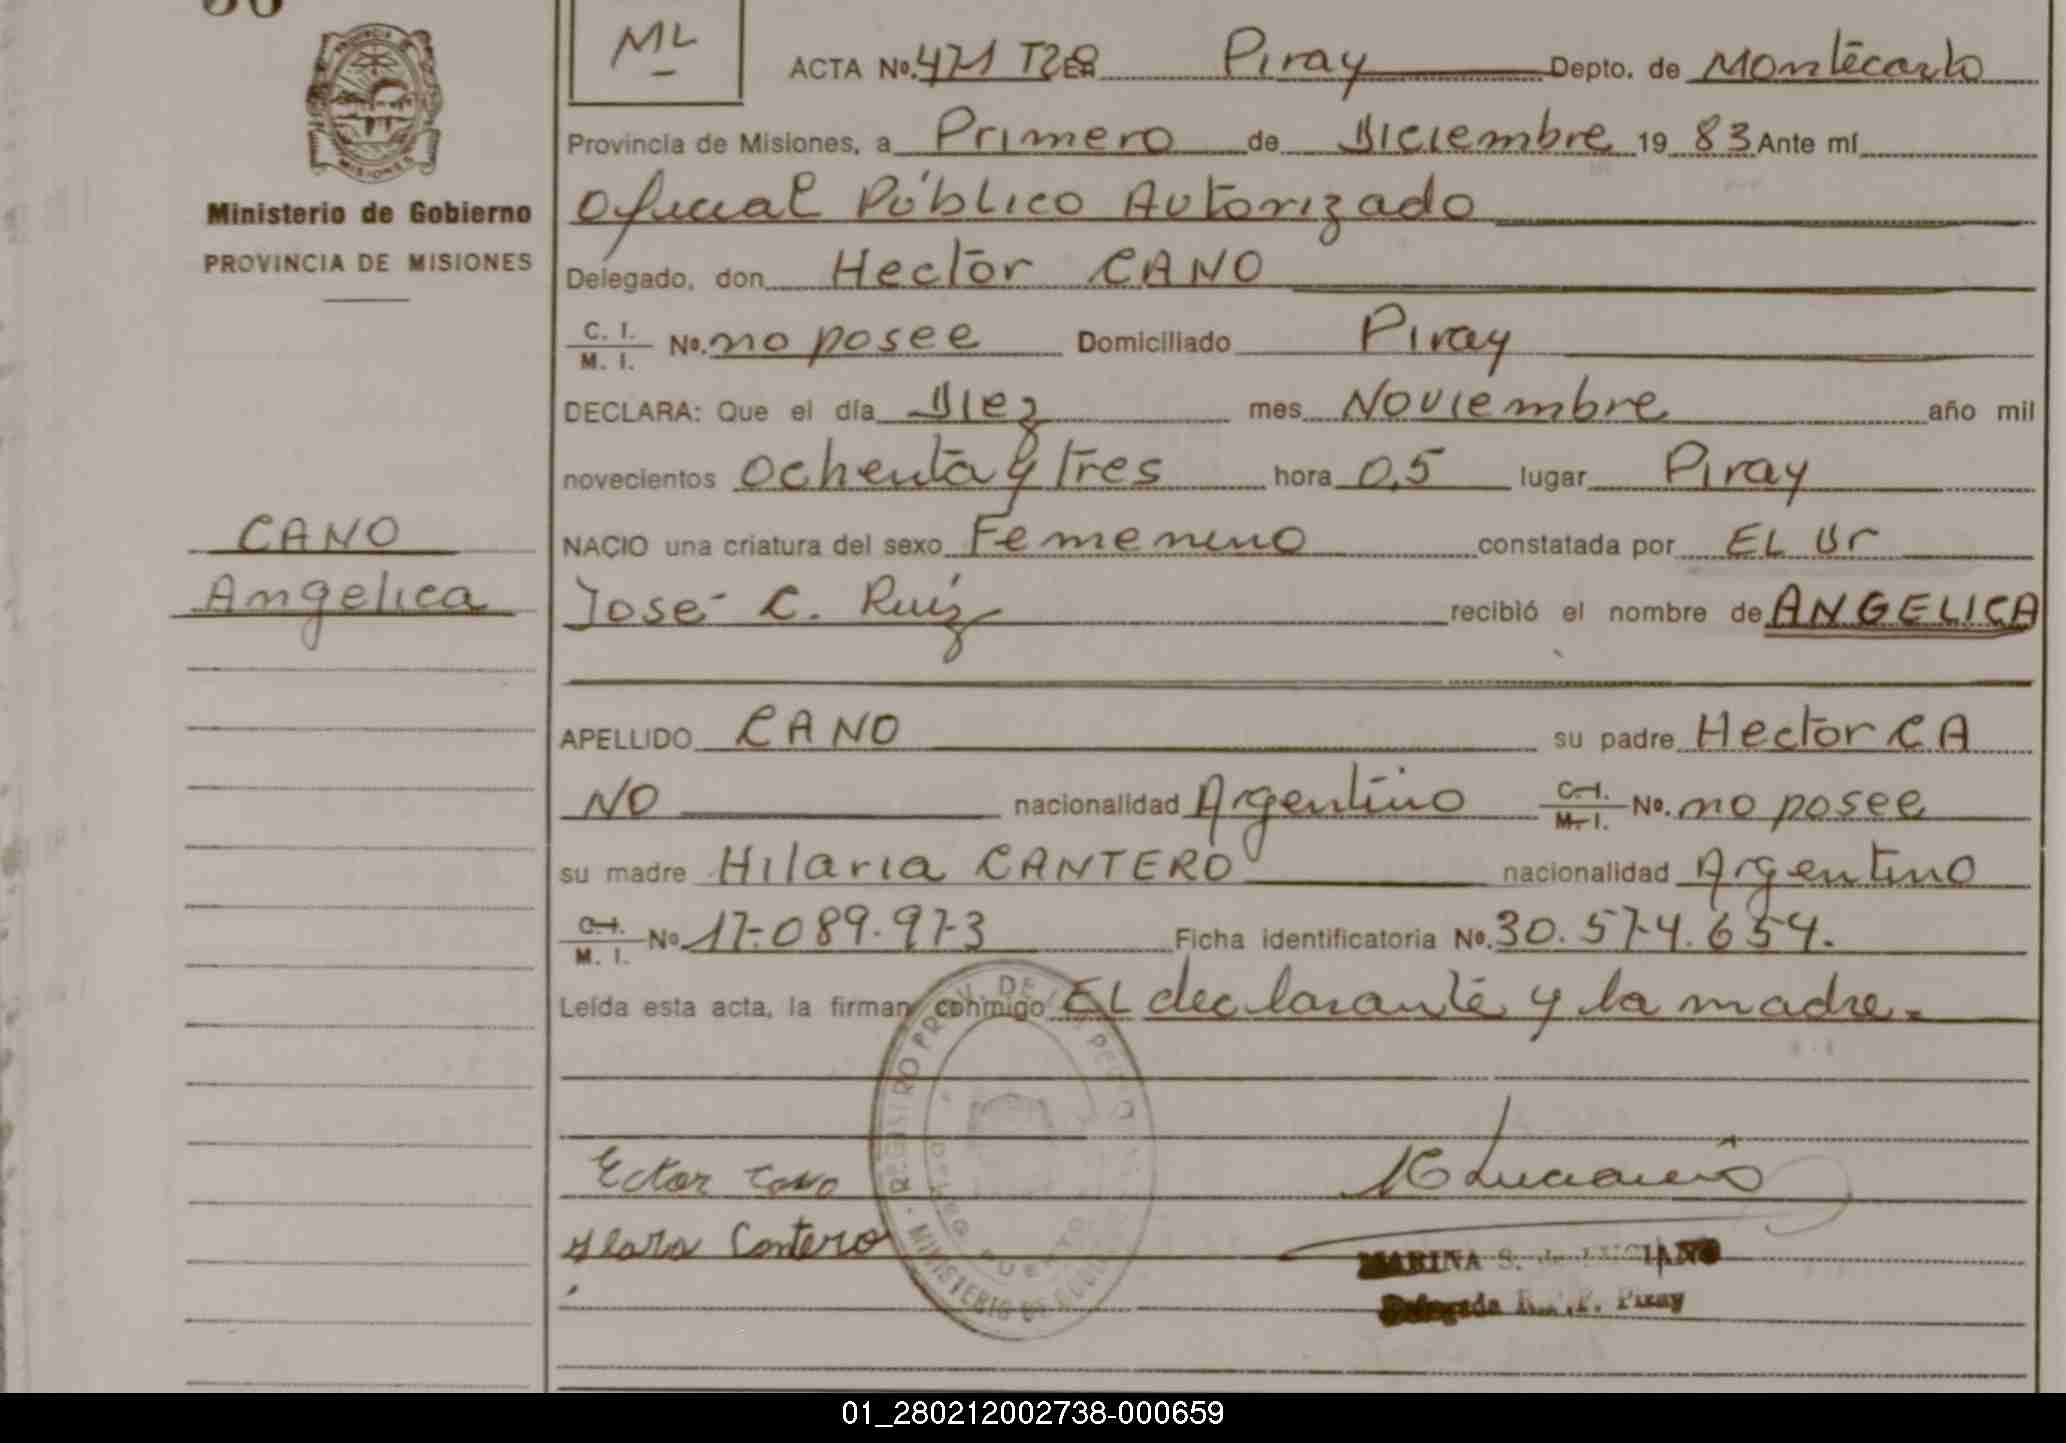 ML
ACTA Nº. 471 T2ER Piray Depto. de Montecarlo
Provincia de Misiones, a Primero de Diciembre 19 83 Ante mí
Oficial Público Autorizado
Ministerio de Gobierno
PROVINCIA DE MISIONES
Delegado, don Hector CANO
C. I.
M. I. Nº. no posee Domiciliado Piray
DECLARA: Que el día Diez mes Noviembre año mil
novecientos Ochenta y Tres hora 0,5 lugar Piray
CANO
Angelica
NACIO una criatura del sexo Femenino constatada por EL Dr
José C. Ruiz recibió el nombre de ANGELICA
APELLIDO CANO su padre Hector CA
NO nacionalidad Argentino C. I. M. I. Nº. no posee
su madre Hilaria CANTERO nacionalidad Argentino
C. I.
M. I. Nº 17.089.973 Ficha identificatoria Nº. 30.574.654.
Leída esta acta, la firman conmigo EL declarante y la madre.
Ector Cano
Ilara Contero
MARINA S. de LUCIANO
Delegada R. P. Piray
01_280212002738-000659